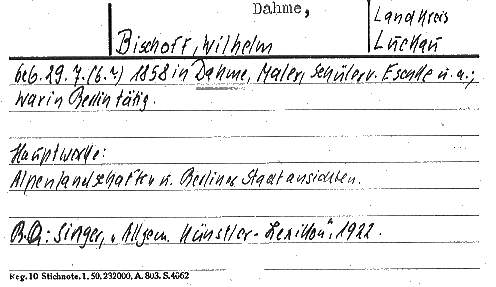 Dahme,
Landkreis
Bischoff, Wilhelm
Luckau
geb. 29.7.(6.?) 1858 in Dahme, Maler, Schüler v. Eschke u. a.;
war in Berlin tätig.
Hauptwerke:
Alpenlandschaften u. Berliner Stadtansichten.
B.Q.: Singer, „Allgem. Künstler-Lexikon", 1922.
Reg. 10 Stichnote. 1. 50. 232000, A. 803. S. 4662